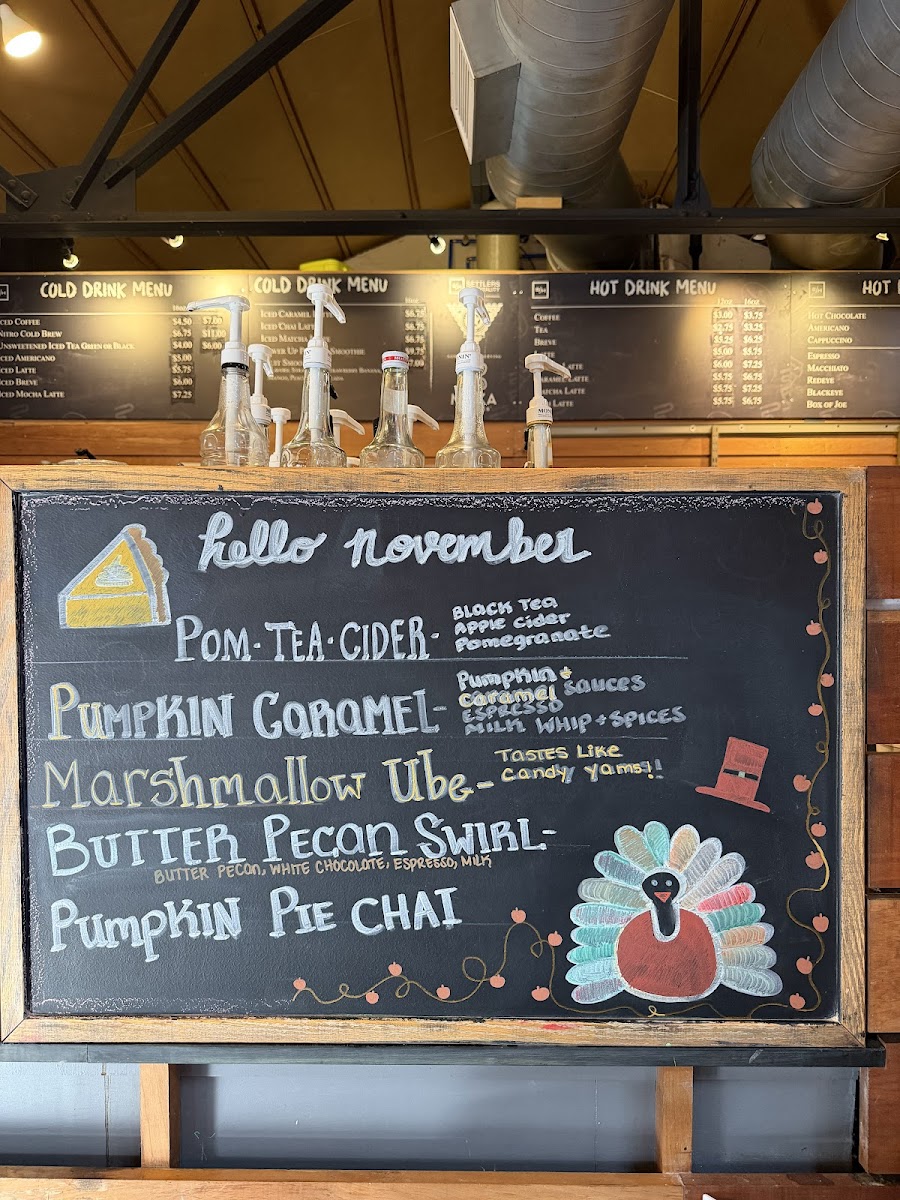 COLD DRINK MENU
16oz
ICED COFFEE
$4.50 $7.00
NITRO COLD BREW
$6.75 $11.00
UNSWEETENED ICED TEA GREEN OR BLACK
$4.00 $6.00
ICED AMERICANO
$5.00
ICED LATTE
$5.75
ICED BREVE
$6.00
ICED MOCHA LATTE
$7.25
COLD DRINK MENU
16oz
ICED CARAMEL
$6.75
ICED CHAI LATTE
ICED MATCHA
SMOOTHIE
SETTLERS
HOT DRINK MENU
12oz 16oz
COFFEE
$3.00 $3.75
TEA
$2.75 $3.25
BREVE
LATTE
$6.00 $7.25
$5.75 $6.75
LATTE
$6.75 $7.25
LATTE
$5.75 $6.75
HOT
HOT CHOCOLATE
AMERICANO
CAPPUCCINO
ESPRESSO
MACCHIATO
REDEYE
BLACKEYE
BOX OF JOE
hello november
POM · TEA · CIDER -
BLACK TEA
APPLE CIDER
Pomegranate
PUMPKIN CARAMEL -
Pumpkin +
caramel sauces
ESPRESSO
MILK WHIP + SPICES
Marshmallow Ube -
TASTES LIKE
candy yams!!
BUTTER PECAN SWIRL -
BUTTER PECAN, WHITE CHOCOLATE, ESPRESSO, MILK
PUMPKIN PIE CHAI